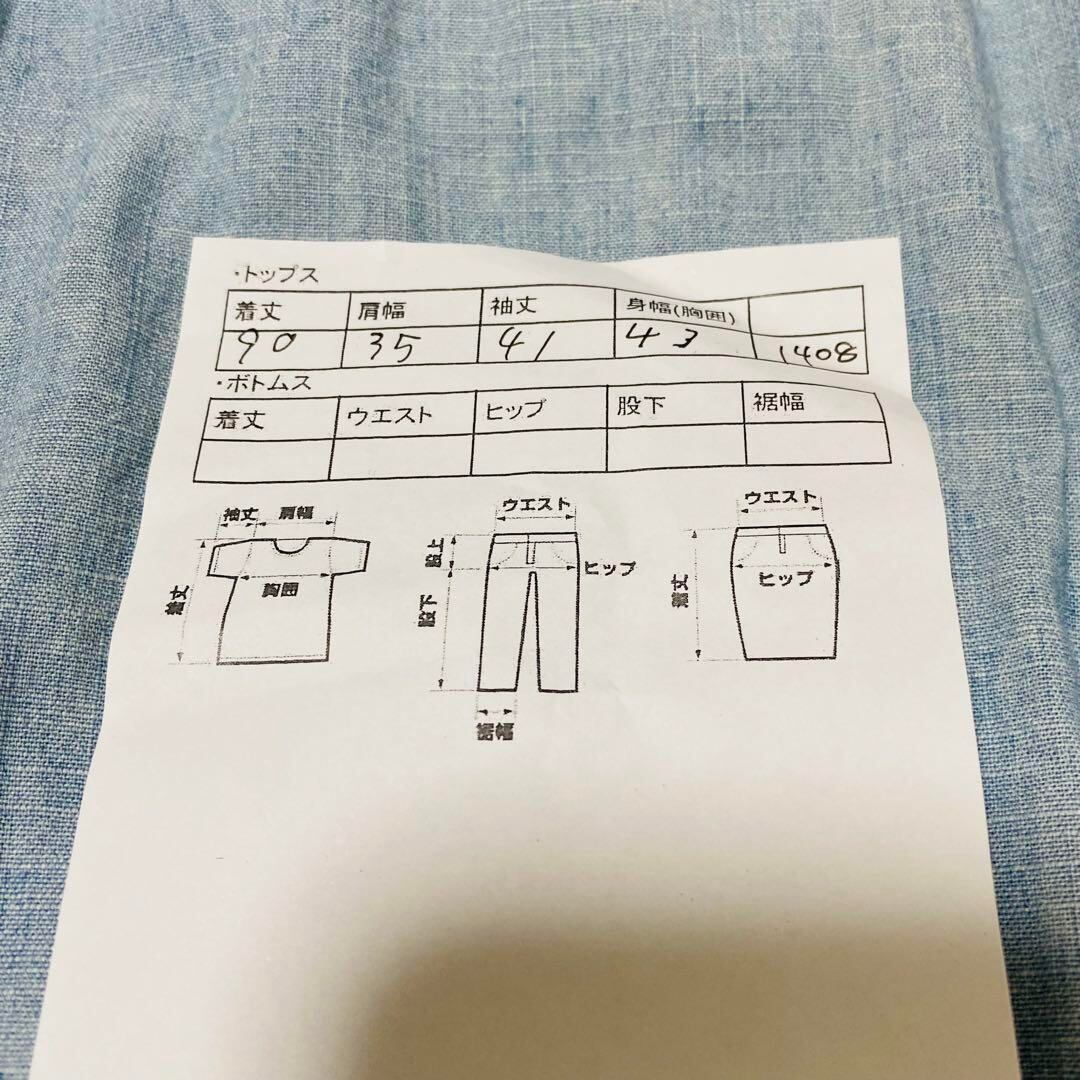 ・トップス
着丈 肩幅 袖丈 身幅(胸囲)
90 35 41 43 1408
・ボトムス
着丈 ウエスト ヒップ 股下 裾幅
袖丈 肩幅
着丈
胸囲
ウエスト
股上
ヒップ
股下
裾幅
ウエスト
着丈
ヒップ